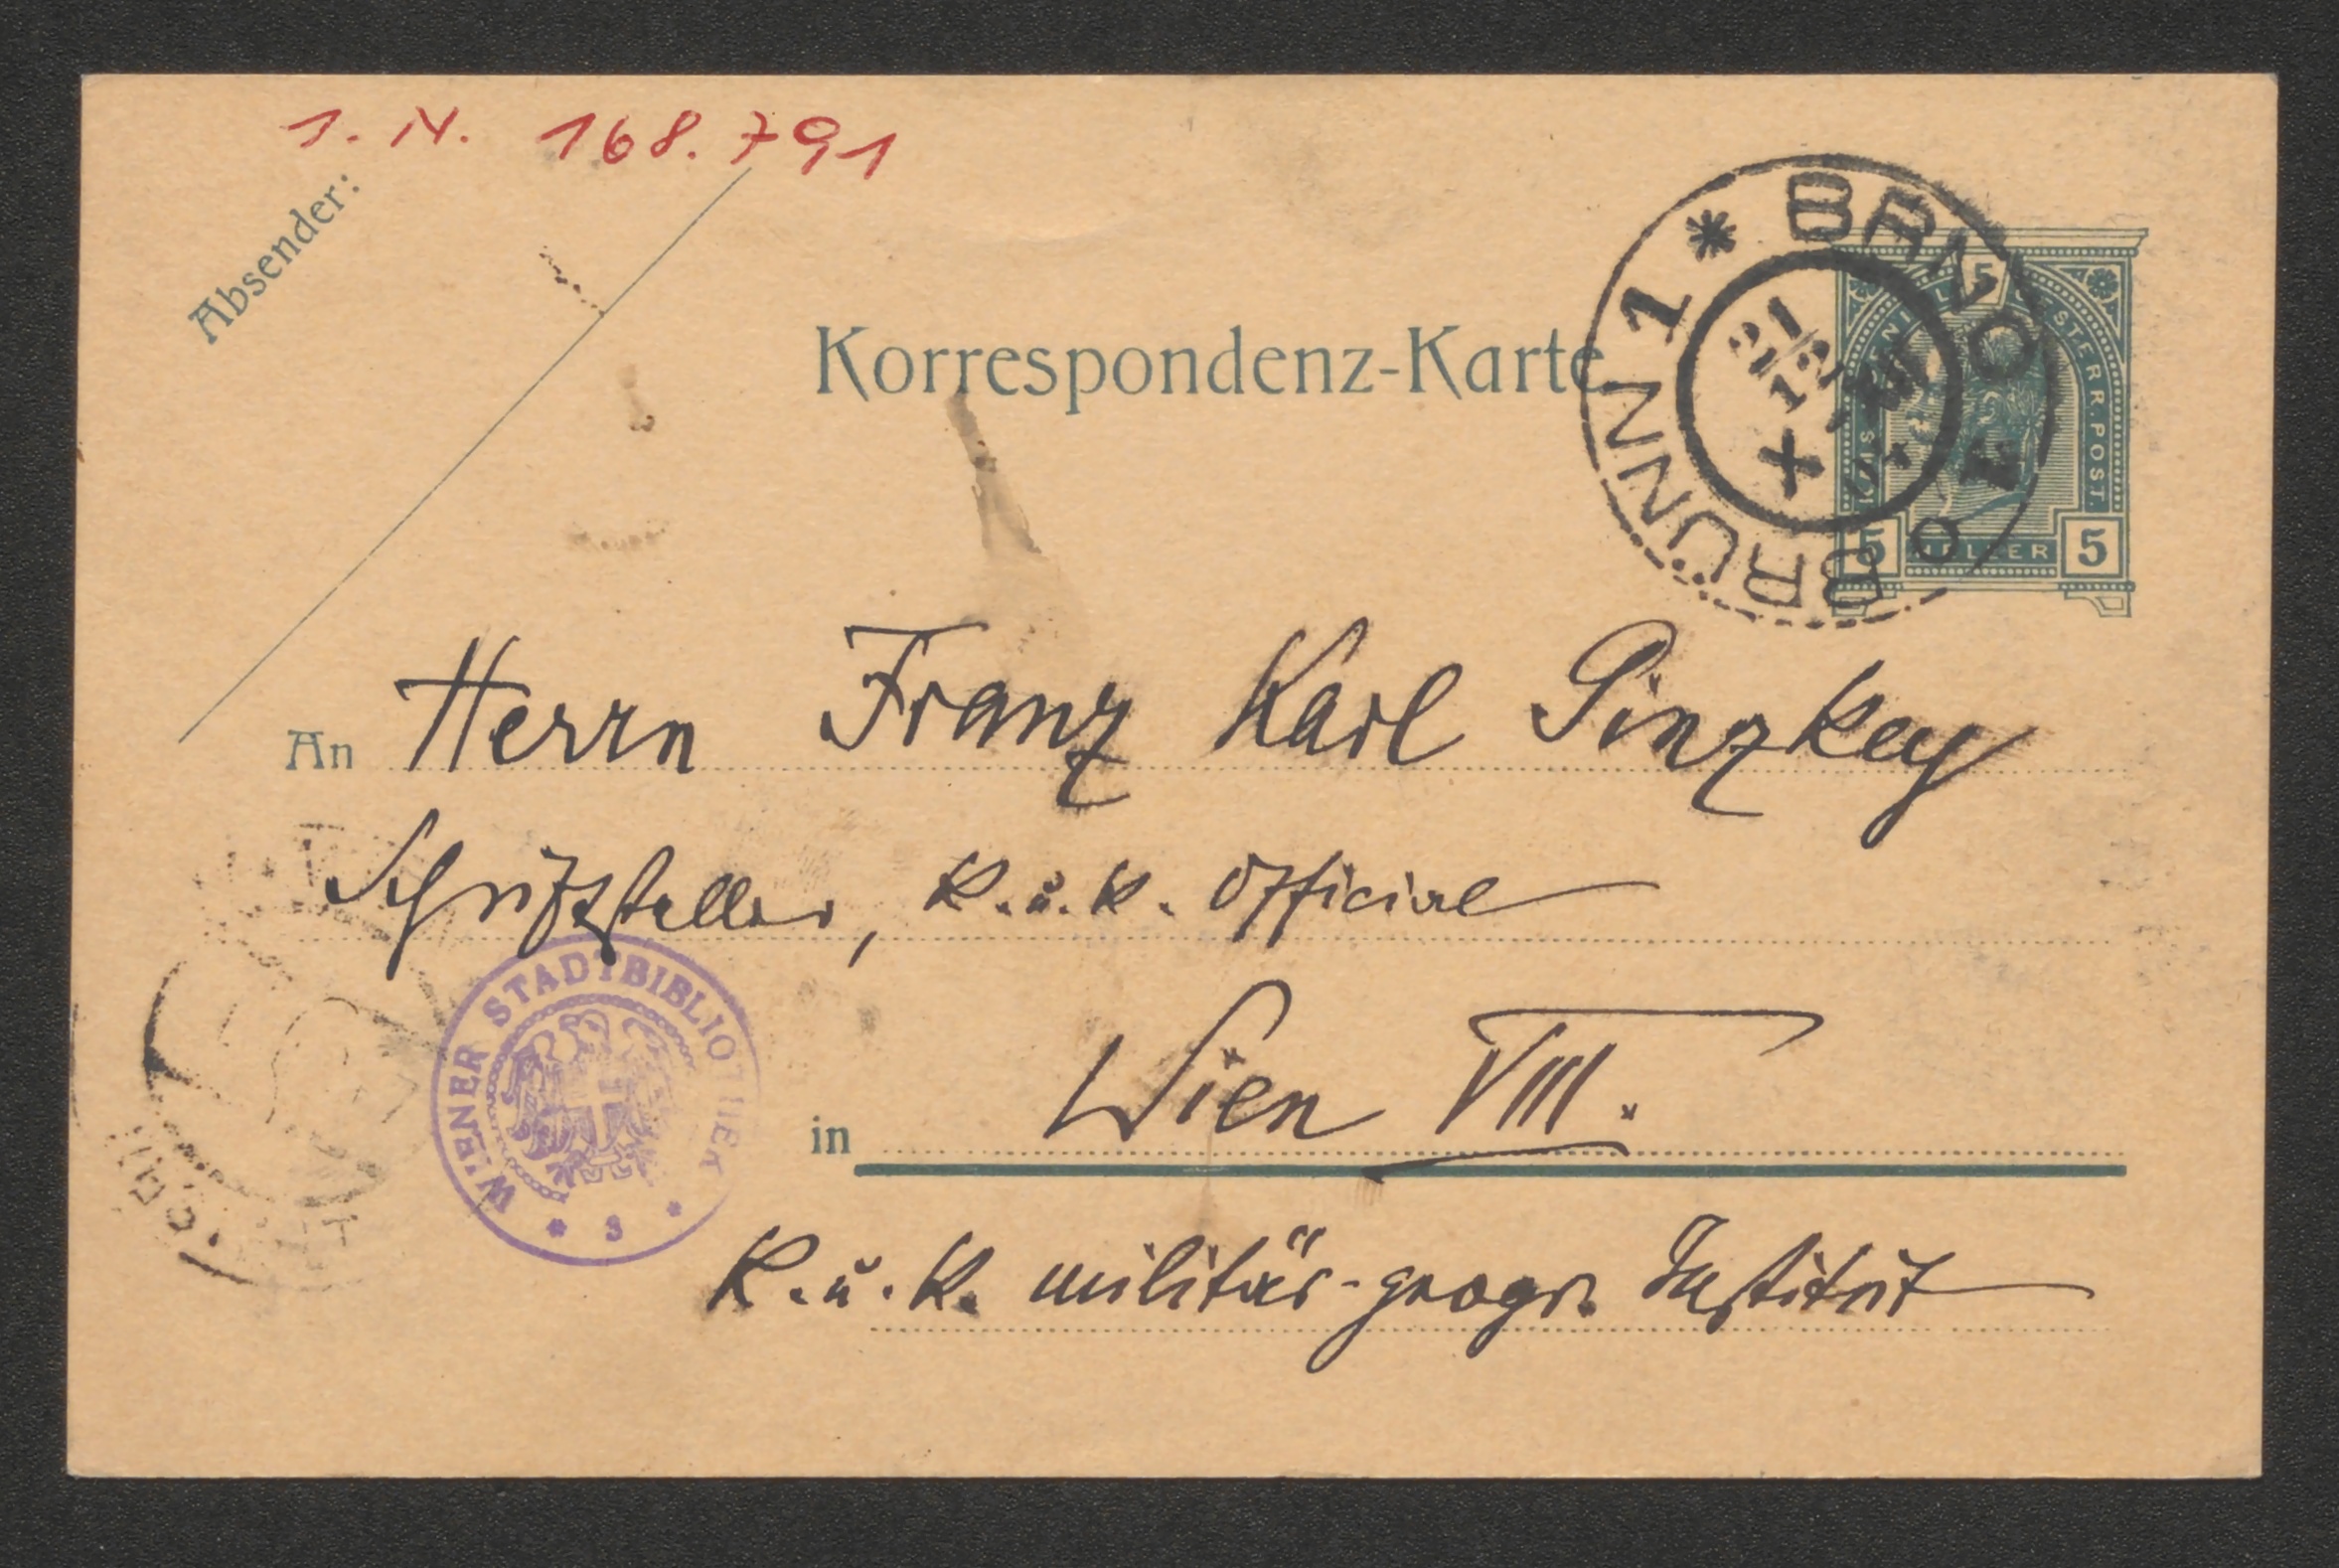 1. N. 168.791
Absender:
Korrespondenz-Karte
BRNO 1 * BRÜNN 1
21
12
5
ÖSTERR. POST.
5 HELLER 5
An Herrn Franz Karl Ginzkey
Schriftsteller, K. u. K. Official
in Wien VIII.
K. u. K. militär-geogr. Institut
WIENER STADTBIBLIOTHEK
* 3 *